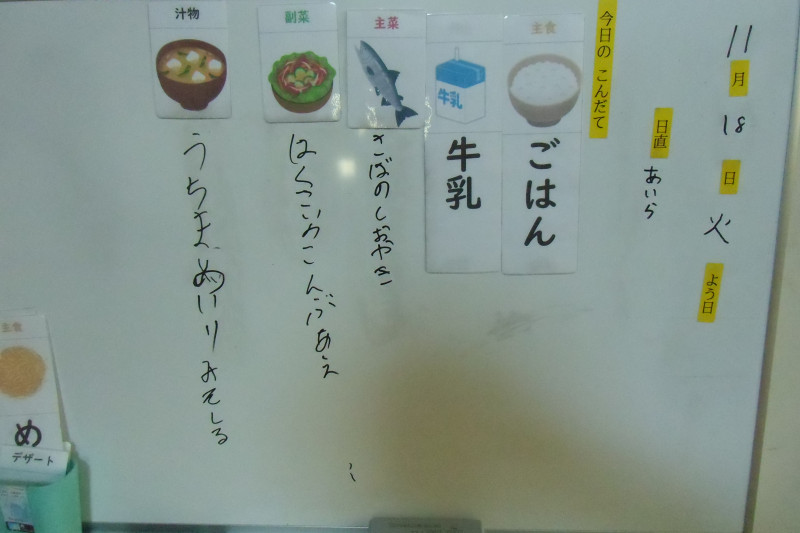 11月18日火よう日
日直 あいら
今日の こんだて
主食
ごはん
牛乳
牛乳
主菜
さばのしおやき
副菜
はくさいのこんぶあえ
汁物
うちまめいりみそしる
主食
め
デザート